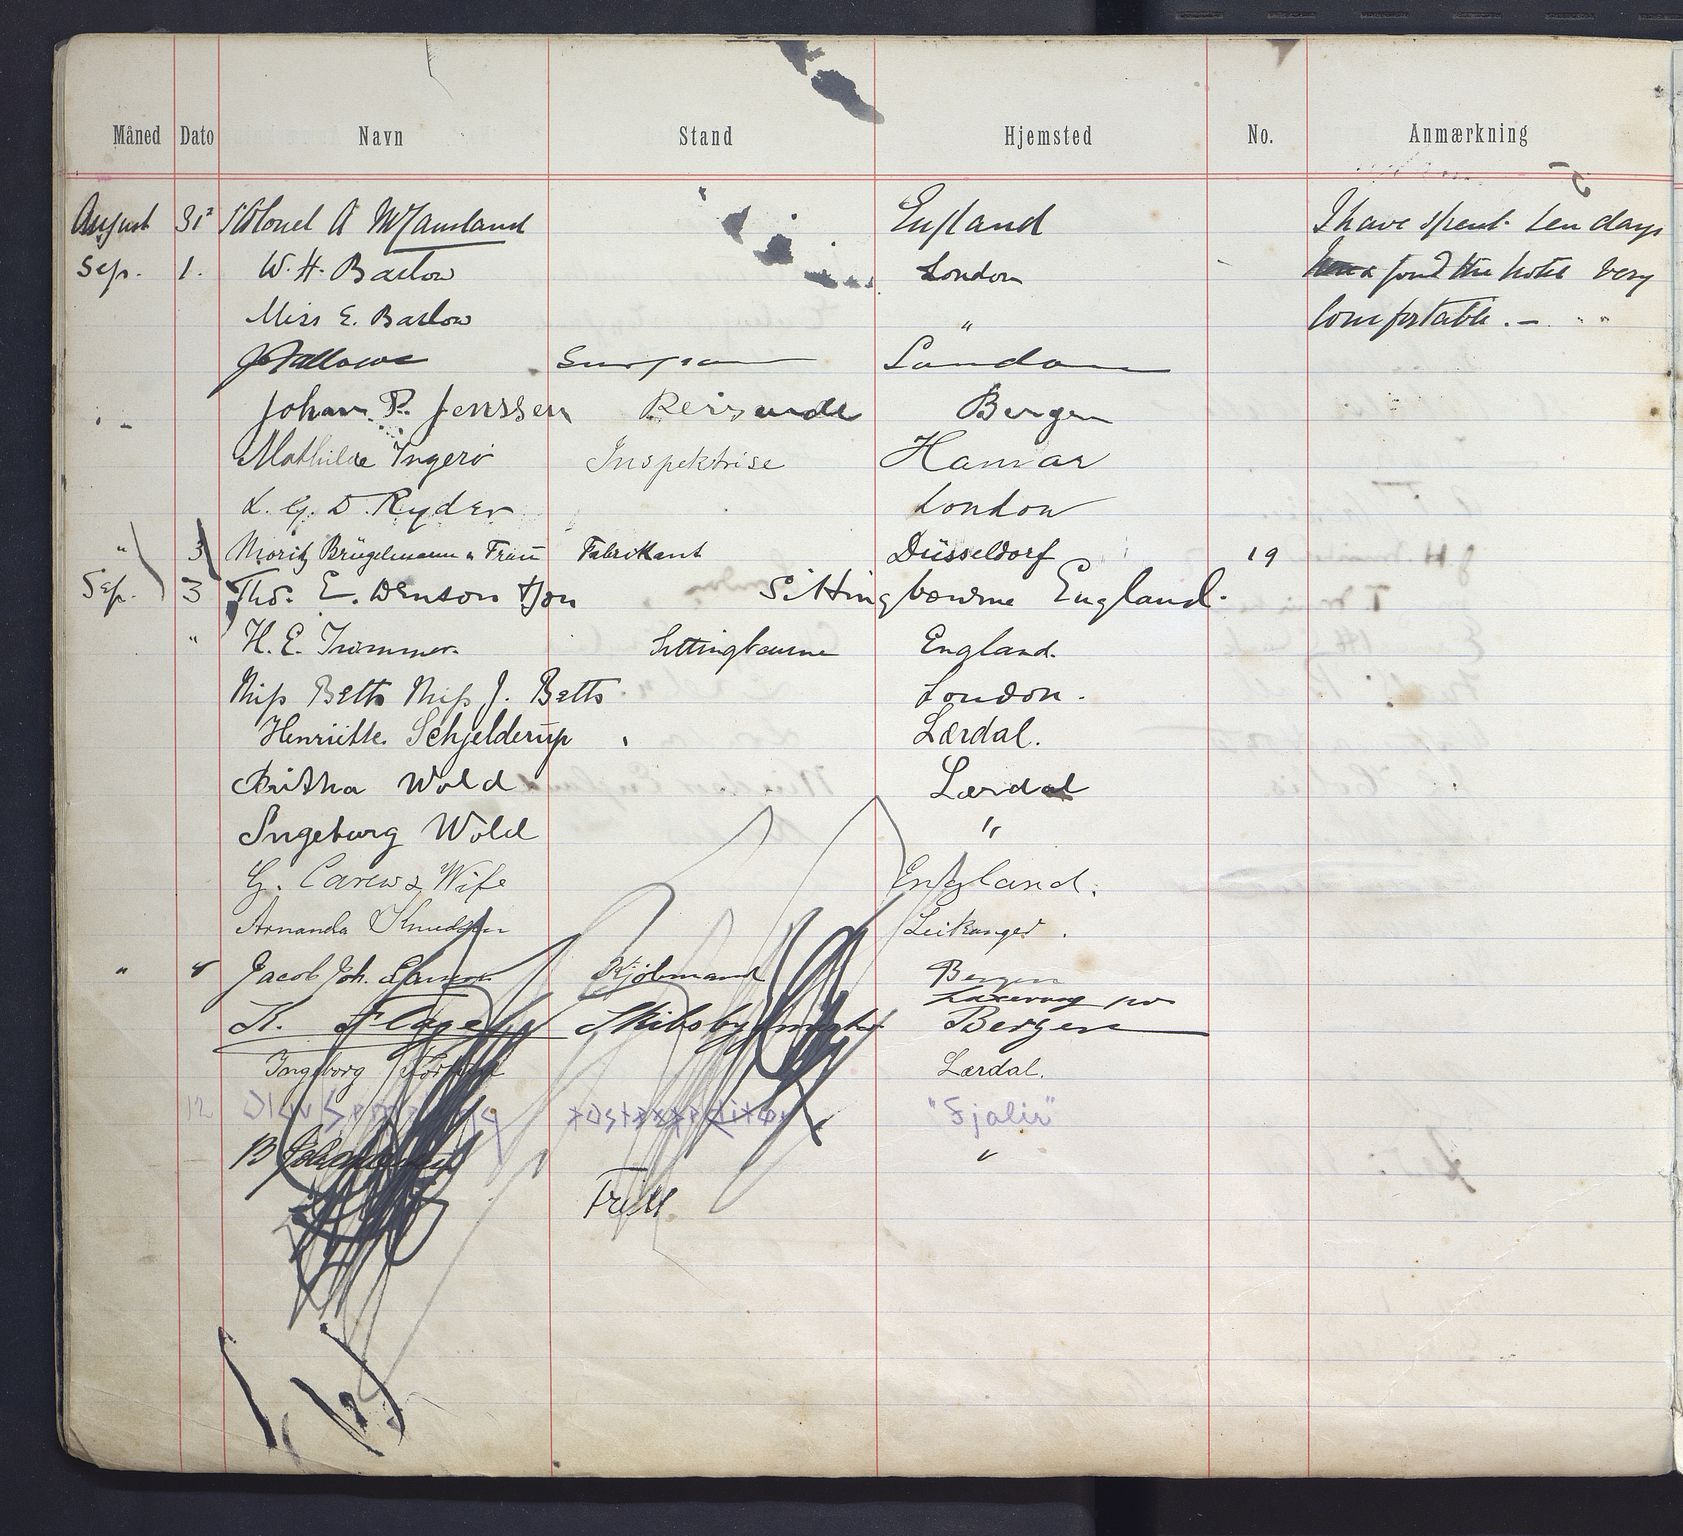 Måned Dato Navn Stand Hjemsted No. Anmærkning
August 31 Colonel A England I have spent ten days
Sep. 1. W. H. Barlow London & found the hotel very
Miss E. Barlow " Comfortable. –
London
Johan P. Jenssen Reisende Bergen
Mathilde Ingerö Inspektrise Hamar
L. G. D. Ryder London
" 3 Moritz Brügelmann u Frau Fabrikant Düsseldorf 19
Sep. 3 Thos. E. Denson & Son Sittingbourne England.
" H. E. Trimmer. Sittingbourne England.
Miss Betts Miss J. Betts London.
Henriette Schjelderup Lærdal.
Britha Wold Lærdal
Ingeborg Wold "
G. Carew & Wife England.
Amanda Knudsen Leikanger.
" 8 Jacob Joh. Kjöbmand Bergen
K. Flage Skibsbygmester Laxevaag pr
Bergen
Ingeborg Lærdal.
12 Olav "Fjalir"
B "